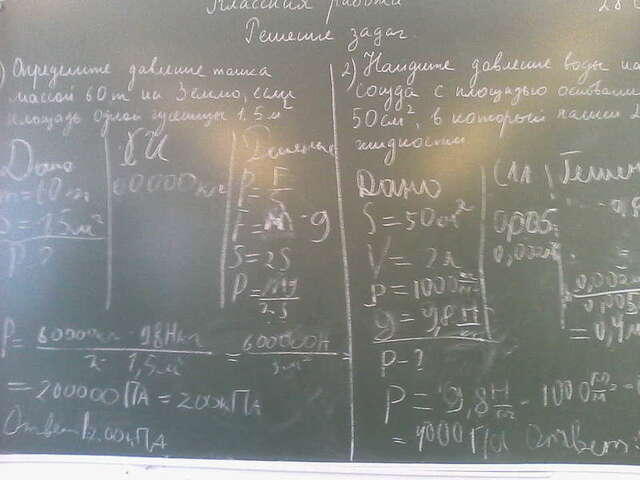 Классная работа
Решение задач.
1) Определите давление танка
массой 60 т на Землю, если
площадь одной гусеницы 1,5 м²
Дано
m = 60 т
S = 1,5 м²
P - ?
СИ
60000 кг
Решение
P = F/S
F = m · g
S = 2S
P = mg/2S
P = 60000кг · 9,8Н/кг / 2 · 1,5м² = 600000Н / 3м²
= 200000 ПА = 200кПА
Ответ 200кПА
2) Найдите давление воды на
сосуда с площадью основани
50 см², в который налили 2
жидкости
Дано
S = 50см²
V = 2л
P = 1000
g = 9,8 Н
P - ?
СИ
0,005
0,002
Решен
0,002
0,005
= 0,4м
P = 9,8 Н · 1000
= 4000 Па Ответ: